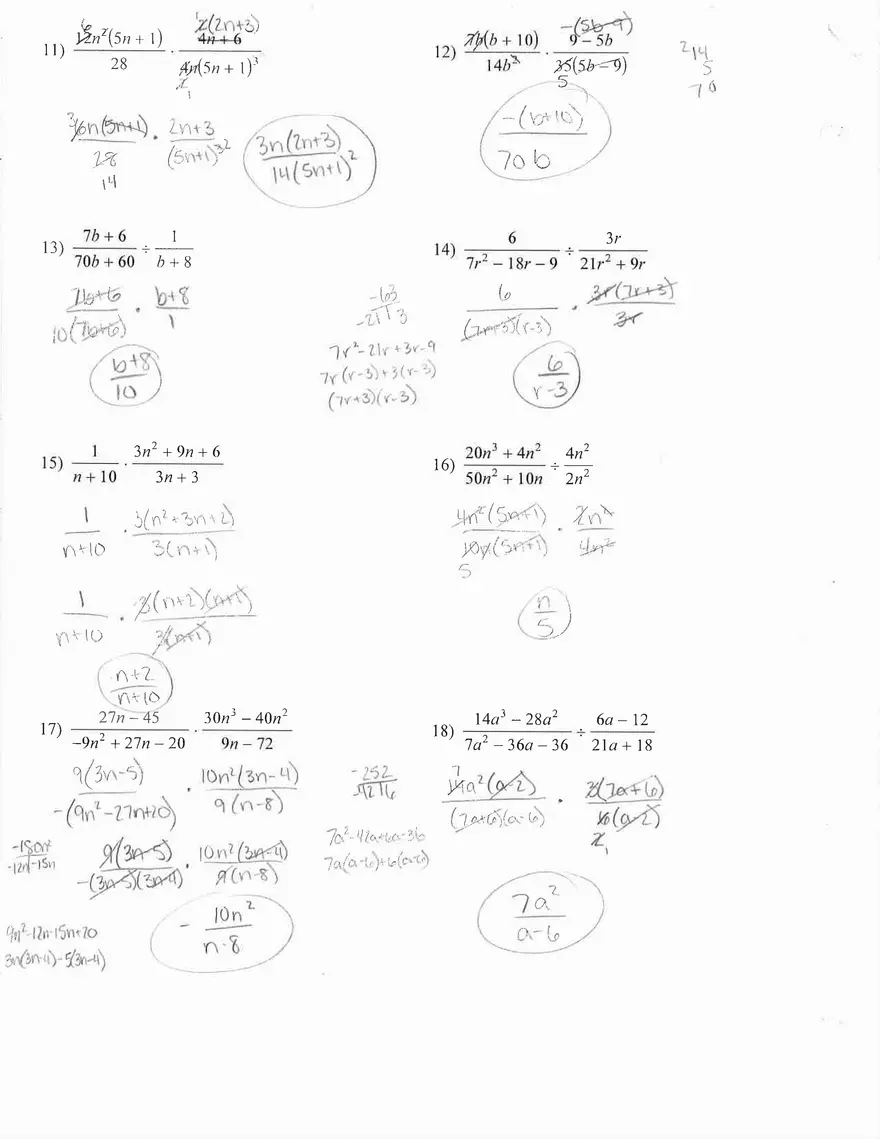 11) 12n²(5n + 1)/28 · 4n + 6/4n(5n + 1)³
6
2(2n+3)
2
1
3 6n(5n+1)/28 · 2n+3/(5n+1)³ 2
14
3n(2n+3)/14(5n+1)²
12) 7b(b + 10)/14b² · 9 − 5b/35(5b − 9)
-(5b-9)
5
2 14
5
70
-(b+10)/70b
13) 7b + 6/70b + 60 ÷ 1/b + 8
7b+6/10(7b+6) · b+8/1
b+8/10
14) 6/7r² − 18r − 9 ÷ 3r/21r² + 9r
-63
-21 | 3
7r²-21r+3r-9
7r(r-3)+3(r-3)
(7r+3)(r-3)
6/(7r+3)(r-3) · 3r(7r+3)/3r
6/r-3
15) 1/n + 10 · 3n² + 9n + 6/3n + 3
1/n+10 · 3(n²+3n+2)/3(n+1)
1/n+10 · 3(n+2)(n+1)/3(n+1)
n+2/n+10
16) 20n³ + 4n²/50n² + 10n ÷ 4n²/2n²
4n²(5n+1)/10n(5n+1) · 2n²/4n²
5
n/5
17) 27n − 45/−9n² + 27n − 20 · 30n³ − 40n²/9n − 72
9(3n-5)/-(9n²-27n+20) · 10n²(3n-4)/9(n-8)
-180n²
-12n | -15n
9(3n-5)/-(3n-5)(3n-4) · 10n²(3n-4)/9(n-8)
9n²-12n-15n+20
3n(3n-4)-5(3n-4)
- 10n²/n-8
18) 14a³ − 28a²/7a² − 36a − 36 ÷ 6a − 12/21a + 18
-252
-42 | 6
7a²-42a+6a-36
7a(a-6)+6(a-6)
7
14a²(a-2)/(7a+6)(a-6) · 3(7a+6)/6(a-2)
2
1
7a²/a-6